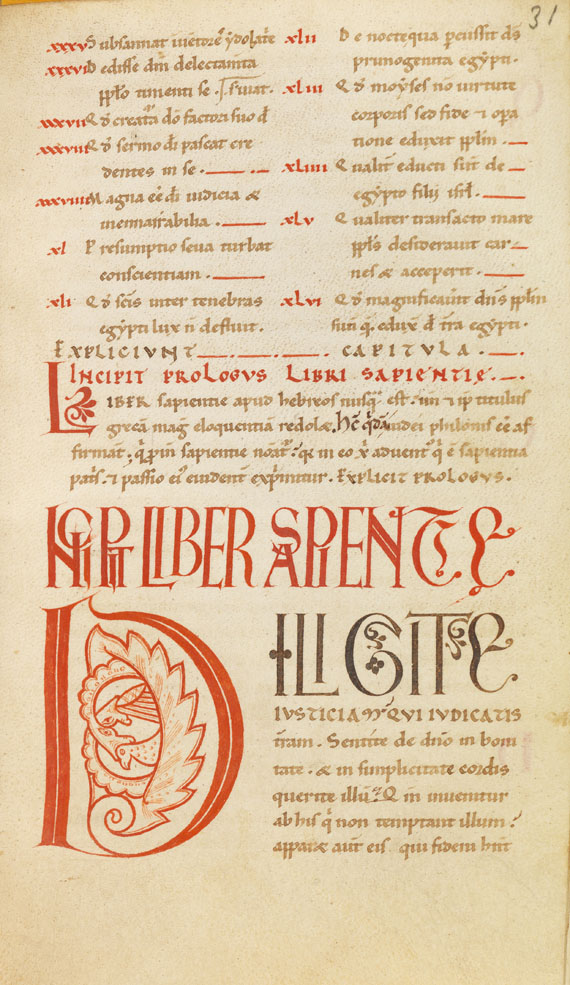 31
xxxv Subsannat
xxxvi Dedisse dm delectamta
pplo timenti se.
xxxvii Qd creatā do factori suo d
xxxviii Qd sermo di pascat cre
dentes in se.
xxxviiii Magna eē di iudicia &
inenarrabilia.
xl Presumptio seva turbat
conscientiam.
xli Qd scis inter tenebras
egypti lux n defluit.
xlii De nocte qua percussit ds
primogenita egypti.
xliii Qd moyses nō virtute
corporis sed fide ⁊ opa
tione eduxit pplm.
xliiii Qualit educti sunt de
egypto filii isrl.
xlv Qualiter transacto mare
ppls desiderauit car
nes & acceperit.
xlvi Qd magnificauit dns pplm
suū q eduxit d tra egypti.
EXPLICIUNT CAPITULA.
INCIPIT PROLOGUS LIBRI SAPIENTIE.
LIBER sapientie apud hebreos nusq est. un ⁊ ip titulus
grecā mag eloquentiā redol&. Hc qdā iudei philonis eē af
firmat. q pin sapientie noat. qr in eo x advent q ē sapientia
patis. ⁊ passio ei evident exprimitur. EXPLICIT PROLOGUS.
INCIPIT LIBER SAPIENTIE
DILIGITE
IUSTICIAM QUI IUDICATIS
tram. Sentite de dno in boni
tate. & in simplicitate cordis
querite illū. Qm invenitur
ab his q non temptant illum.
appar& aut eis qui fidem hnt